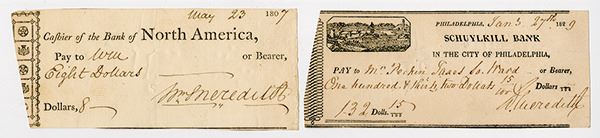 May 23 1807
Cashier of the Bank of North America,
Pay to or Bearer,
Eight Dollars
Wm Meredith
Dollars, 8
PHILADELPHIA, 27th 9
SCHUYLKILL BANK
IN THE CITY OF PHILADELPHIA,
PAY to Mr or Bearer,
One hundred & thirty two Dollars 15 Dollars
132 Dolls. 15
Meredith